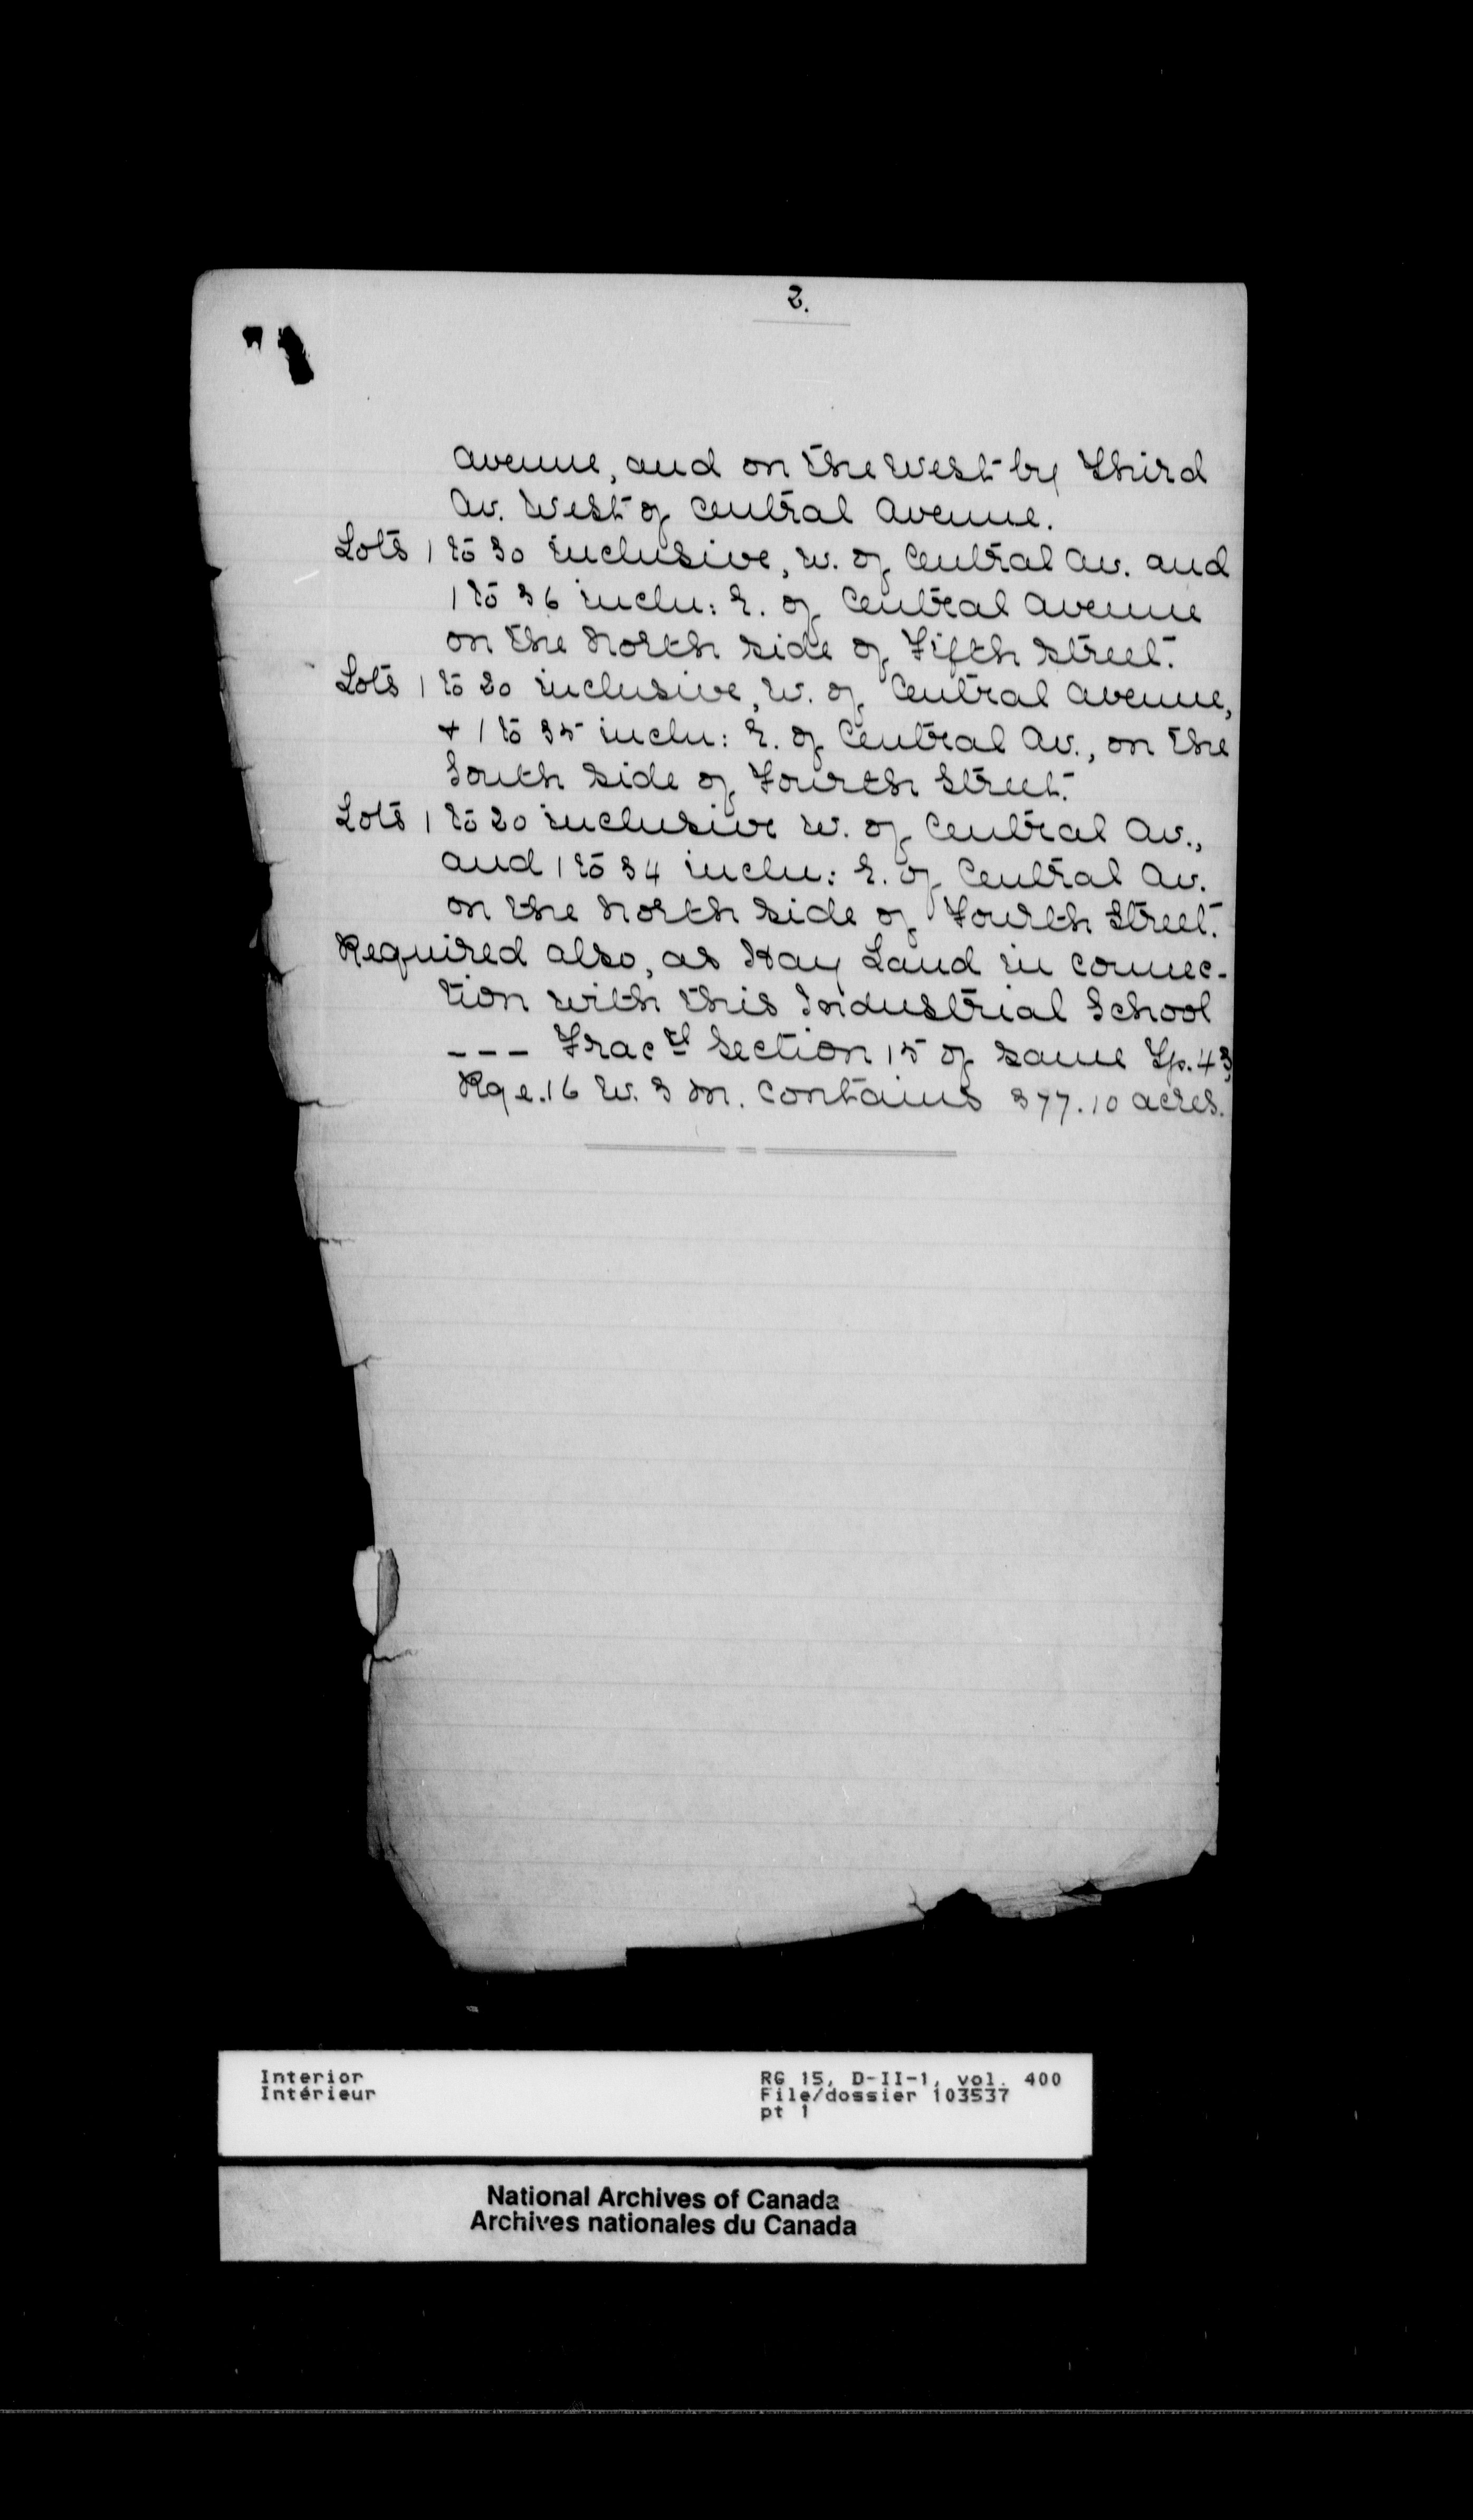 2.
Avenue, and on the West by Third
Av. West of Central Avenue.
Lots 1 to 30 inclusive, W. of Central Av. and
1 to 36 inclu: E. of Central Avenue
on the North side of Fifth Street.
Lots 1 to 20 inclusive, W. of Central Avenue,
+ 1 to 35 inclu: E. of Central Av., on the
South side of Fourth Street.
Lots 1 to 20 inclusive W. of Central Av.,
and 1 to 34 inclu: E. of Central Av.
on the North side of Fourth Street.
Required also, as Hay Land in connec-
tion with this Industrial School
--- Fracl Section 15 of same Tp. 43,
Rge. 16 W. 3 M. contains 377.10 acres.
Interior
Intérieur
RG 15, D-II-1, vol. 400
File/dossier 103537
pt 1
National Archives of Canada
Archives nationales du Canada